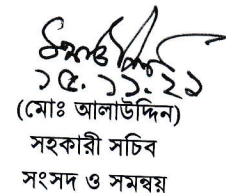 ১৫.১১.২১
(মোঃ আলাউদ্দিন)
সহকারী সচিব
সংসদ ও সমন্বয়